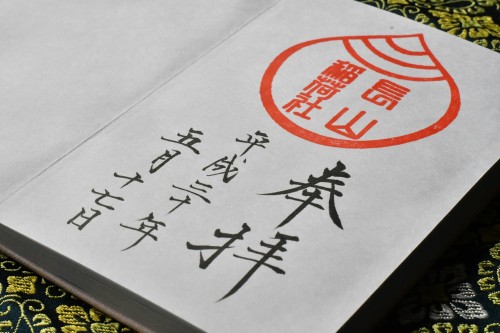 長山
稲荷社
奉拝
平成三十年
五月十七日